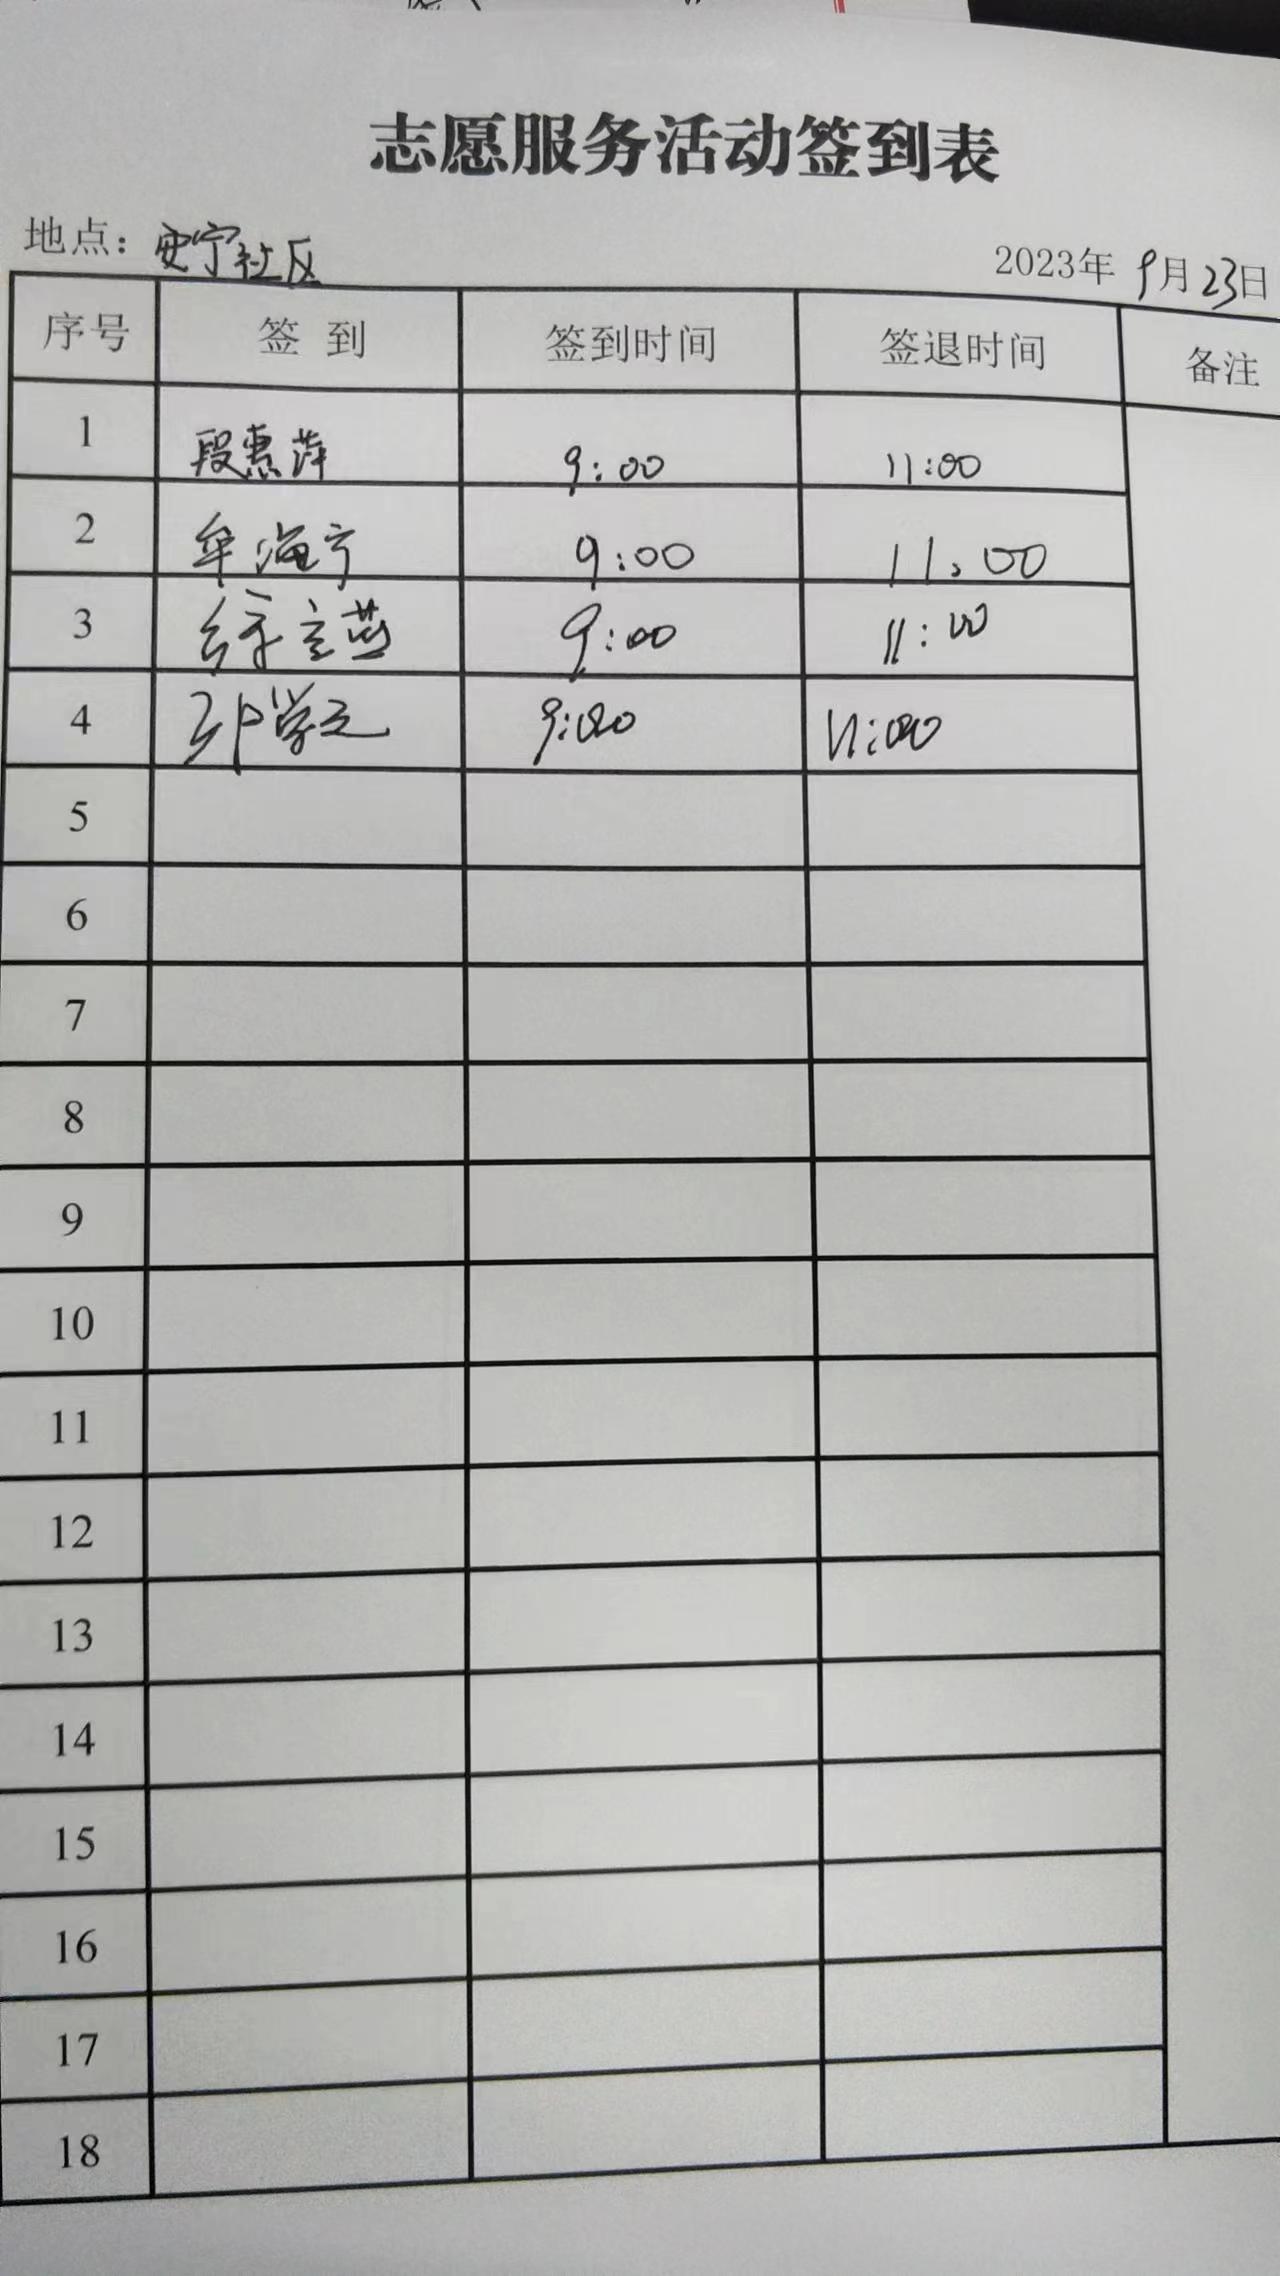 志愿服务活动签到表
地点：安宁社区 2023年 9月23日
序号 签到 签到时间 签退时间 备注
1 段惠萍 9:00 11:00
2 牟海宁 9:00 11:00
3 徐立燕 9:00 11:00
4 邹学元 9:00 11:00
5
6
7
8
9
10
11
12
13
14
15
16
17
18